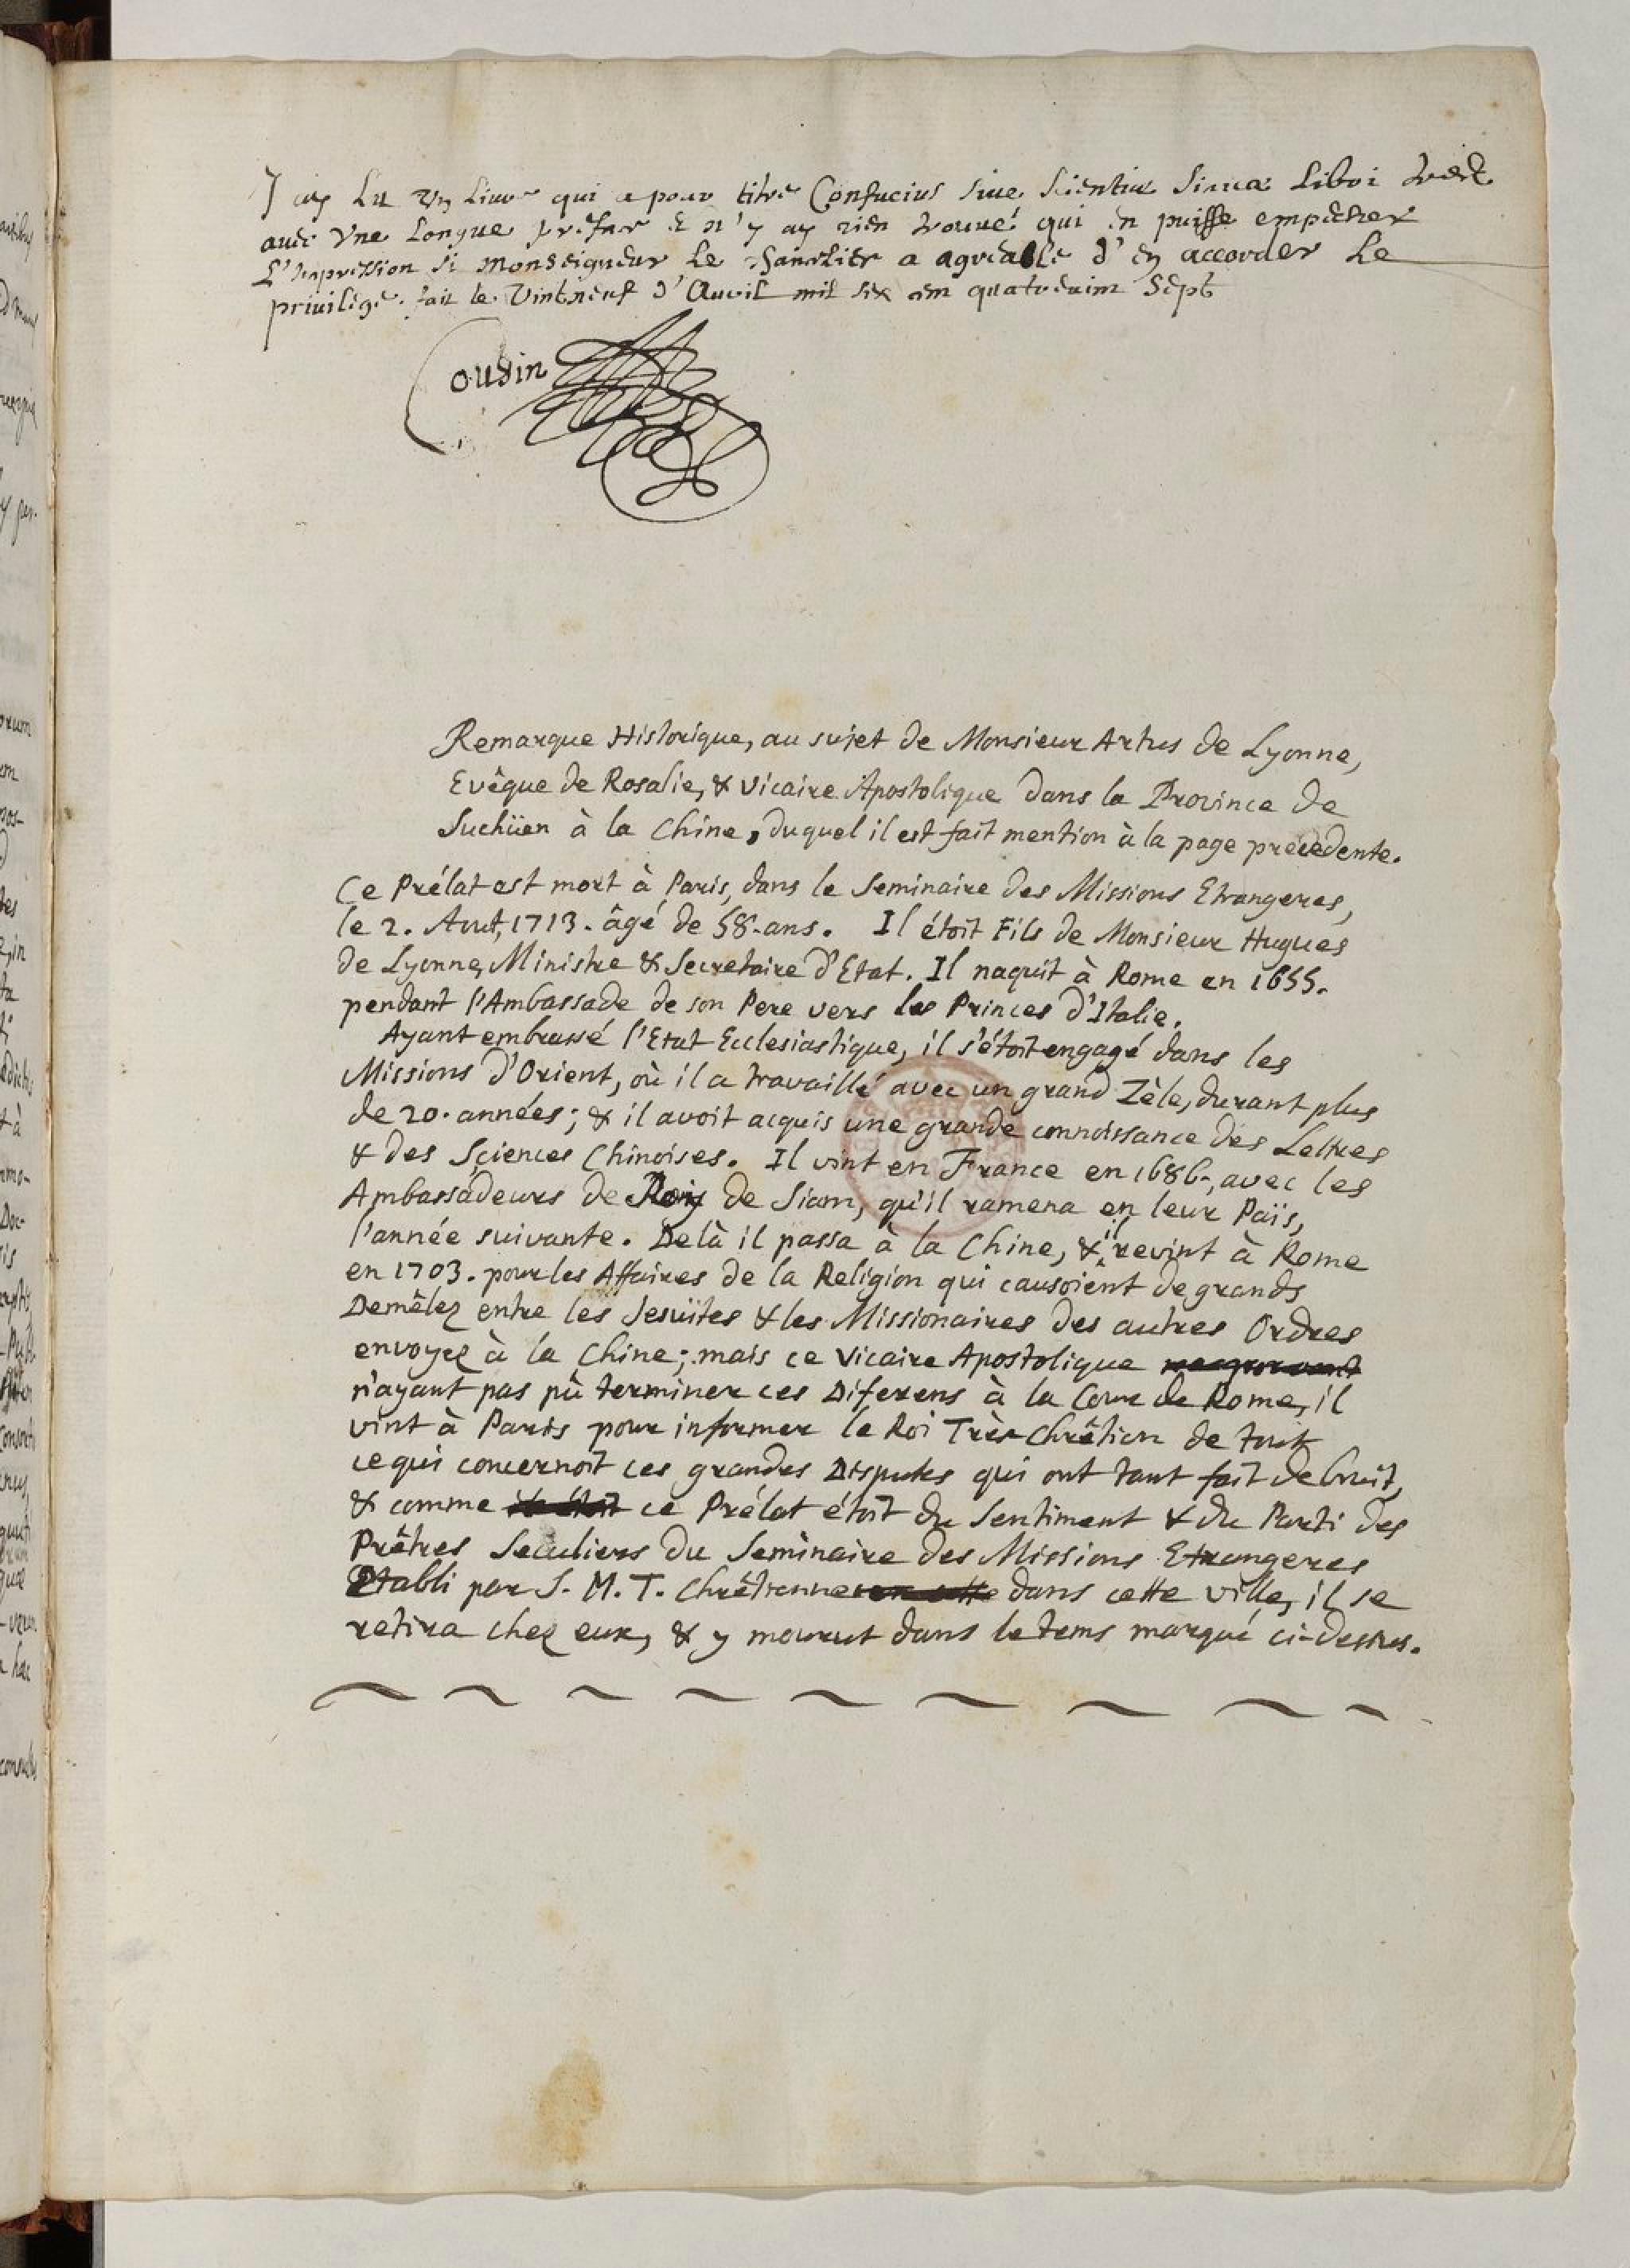 J'ay Lu Un Liure qui a pour titre Confucius siue Scientia Sinica Libri tres
auec Vne Longue preface & n'y ay rien trouué qui en puisse empecher
L'Impression si Monseigneur Le Chancelier a agreable d'en accorder Le
priuilege. fait le Vintneuf d'Auril mil six cem quatreuint Sept
Cousin
Remarque Historique, au sujet de Monsieur Artus de Lyonne,
Evêque de Rosalie, & Vicaire Apostolique dans la Province de
Suchüen à la Chine, duquel il est fait mention à la page precedente.
Ce Prélat est mort à Paris, dans le Seminaire des Missions Etrangeres,
le 2. Aout, 1713. âgé de 58. ans. Il étoit Fils de Monsieur Hugues
de Lyonne, Ministre & Secretaire d'Etat. Il naquit à Rome en 1655.
pendant l'Ambassade de son Pere vers les Princes d'Italie.
Ayant embrassé l'Etat Ecclesiastique, il s'étoit engagé dans les
Missions d'Orient, où il a travaillé avec un grand Zèle, durant plus
de 20. années; & il avoit acquis une grande connoissance des Lettres
& des Sciences Chinoises. Il vint en France en 1686., avec les
Ambassadeurs de Roy de Siam, qu'il ramena en leur Païs,
l'année suivante. Delà il passa à la Chine, & il revint à Rome
en 1703. pour les Affaires de la Religion qui causoient de grands
Demêlez entre les Jesuïtes & les Missionaires des autres Ordres
envoyez à la Chine; mais ce Vicaire Apostolique
n'ayant pas pû terminer ces Diferens à la Cour de Rome, il
vint à Paris pour informer le Roi Très-Chrêtien de tout
ce qui concernoit ces grandes Disputes qui ont tant fait de bruit,
& comme ce Prélat étoit du Sentiment & du Parti des
Prêtres Seculiers du Seminaire des Missions Etrangeres
Etabli par S. M. T. Chrêtienne dans cette ville, il se
retira chez eux, & y mourut dans le tems marqué ci-dessus.